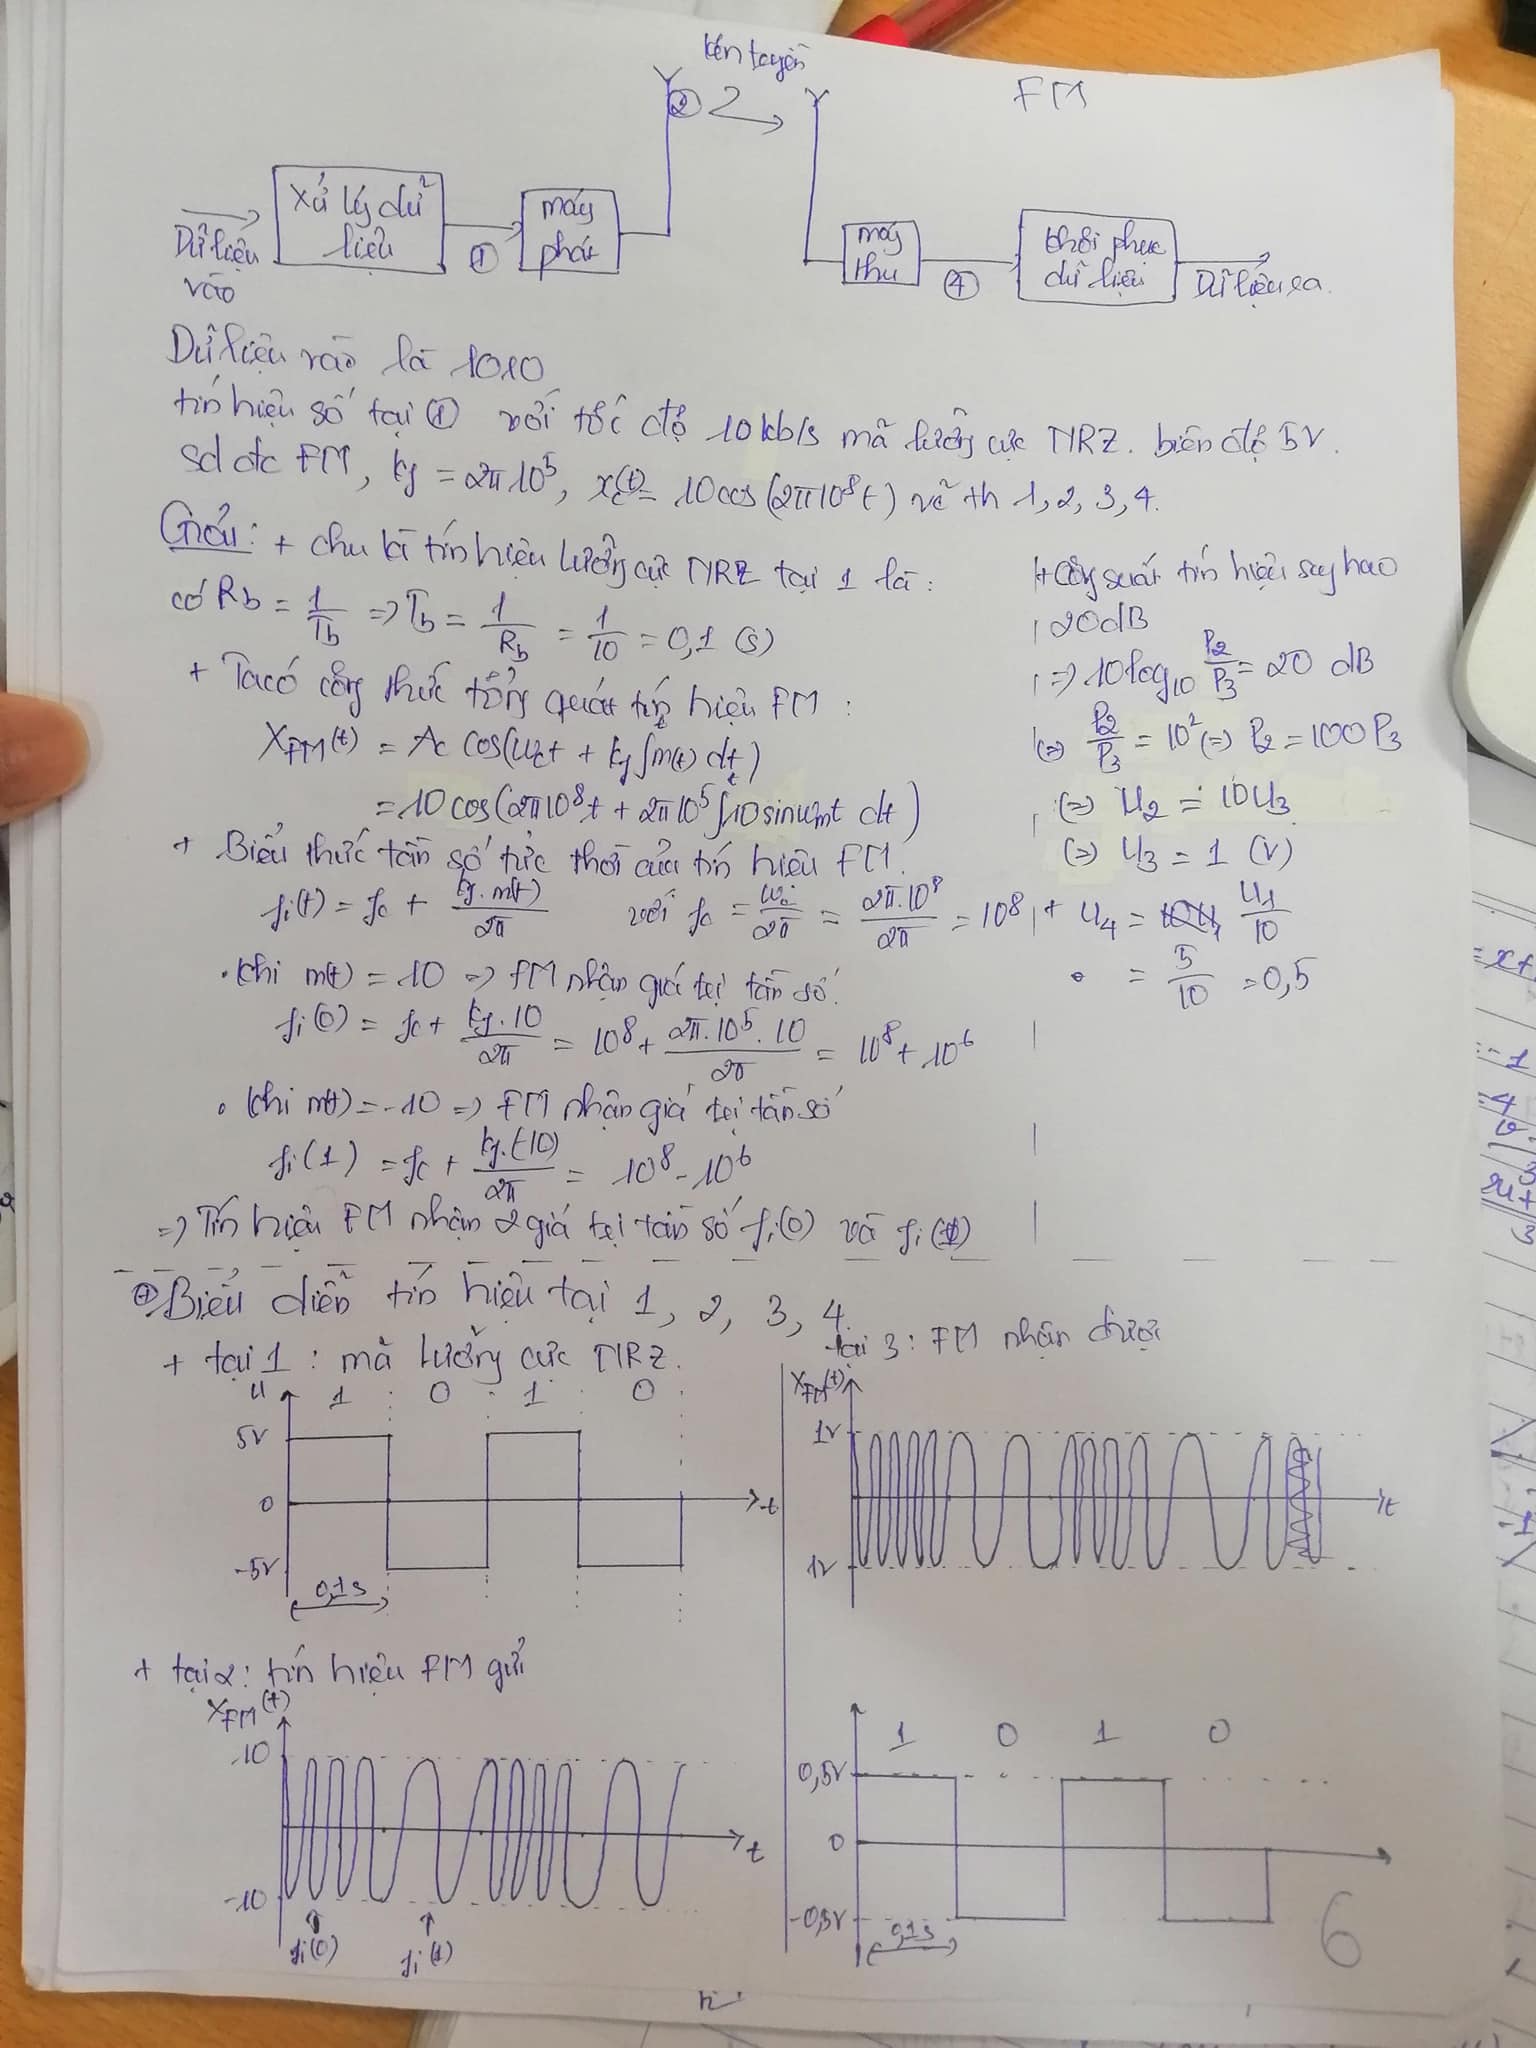 kên truyền
②
FM
Dữ liệu vào
xử lý dữ liệu
①
máy phát
máy thu
④
khôi phục dữ liệu
Dữ liệu ra.
Dữ liệu vào là 1010
tín hiệu số tại ① với tốc độ 10kb/s mã lưỡng cực NRZ. biên độ 5V.
sd đc FM, kf = 2π10⁵, xc(t) = 10cos(2π10⁸t) vẽ th 1, 2, 3, 4.
Giải: + chu kì tín hiệu lưỡng cực NRZ tại 1 là:
có Rb = 1/Tb => Tb = 1/Rb = 1/10 = 0,1 (s)
+ Ta có công thức tổng quát tín hiệu FM:
XFM(t) = Ac cos(ωct + kf ∫m(t) dt)
= 10 cos(2π10⁸t + 2π10⁵ ∫10 sinωmt dt)
+ Biểu thức tần số tức thời của tín hiệu FM.
fi(t) = fc + kf.m(t)/2π với fc = ωc/2π = 2π.10⁸/2π = 10⁸
. khi m(t) = 10 => FM nhận giá trị tần số.
fi(0) = fc + kf.10/2π = 10⁸ + 2π.10⁵.10/2π = 10⁸ + 10⁶
. khi m(t) = -10 => FM nhận giá trị tần số
fi(1) = fc + kf.(-10)/2π = 10⁸ - 10⁶
=> Tín hiệu FM nhận 2 giá trị tần số fi(0) và fi(1)
+ Công suất tín hiệu suy hao
20dB
=> 10log₁₀ P2/P3 = 20 dB
<=> P2/P3 = 10² <=> P2 = 100P3
<=> U2 = 10U3
<=> U3 = 1 (V)
+ U4 = U1/10
= 5/10 = 0,5
⊕ Biểu diễn tín hiệu tại 1, 2, 3, 4.
+ tại 1: mã lưỡng cực NRZ.
u
1 0 1 0
5V
0
-5V
t
0,1s
+ tại 2: tín hiệu FM gửi
XFM(t)
10
-10
t
fi(0)
fi(1)
tại 3: FM nhận được
XFM(t)
1V
1V
t
1 0 1 0
0,5V
0
-0,5V
0,1s
6